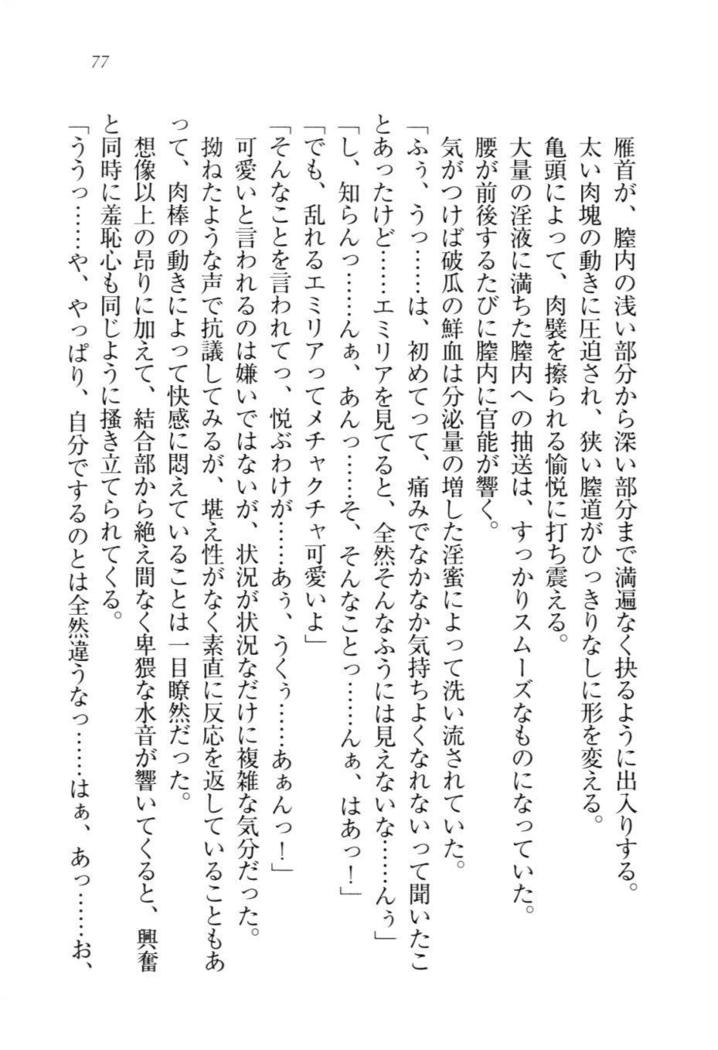 77
雁首が、膣内の浅い部分から深い部分まで満遍なく抉るように出入りする。
太い肉塊の動きに圧迫され、狭い膣道がひっきりなしに形を変える。
亀頭によって、肉襞を擦られる愉悦に打ち震える。
大量の淫液に満ちた膣内への抽送は、すっかりスムーズなものになっていた。
腰が前後するたびに膣内に官能が響く。
気がつけば破瓜の鮮血は分泌量の増した淫蜜によって洗い流されていた。
「ふぅ、うっ……は、初めてって、痛みでなかなか気持ちよくなれないって聞いたこ
とあったけど……エミリアを見てると、全然そんなふうには見えないな……んぅ」
「し、知らんっ……んぁ、あんっ……そ、そんなことっ……んぁ、はあっ！」
「でも、乱れるエミリアってメチャクチャ可愛いよ」
「そんなことを言われてっ、悦ぶわけが……あぅ、うくぅ……あぁんっ！」
可愛いと言われるのは嫌いではないが、状況が状況なだけに複雑な気分だった。
拗ねたような声で抗議してみるが、堪え性がなく素直に反応を返していることもあ
って、肉棒の動きによって快感に悶えていることは一目瞭然だった。
想像以上の昂りに加えて、結合部から絶え間なく卑猥な水音が響いてくると、興奮
と同時に羞恥心も同じように掻き立てられてくる。
「ううっ……や、やっぱり、自分でするのとは全然違うなっ……はぁ、あっ……お、